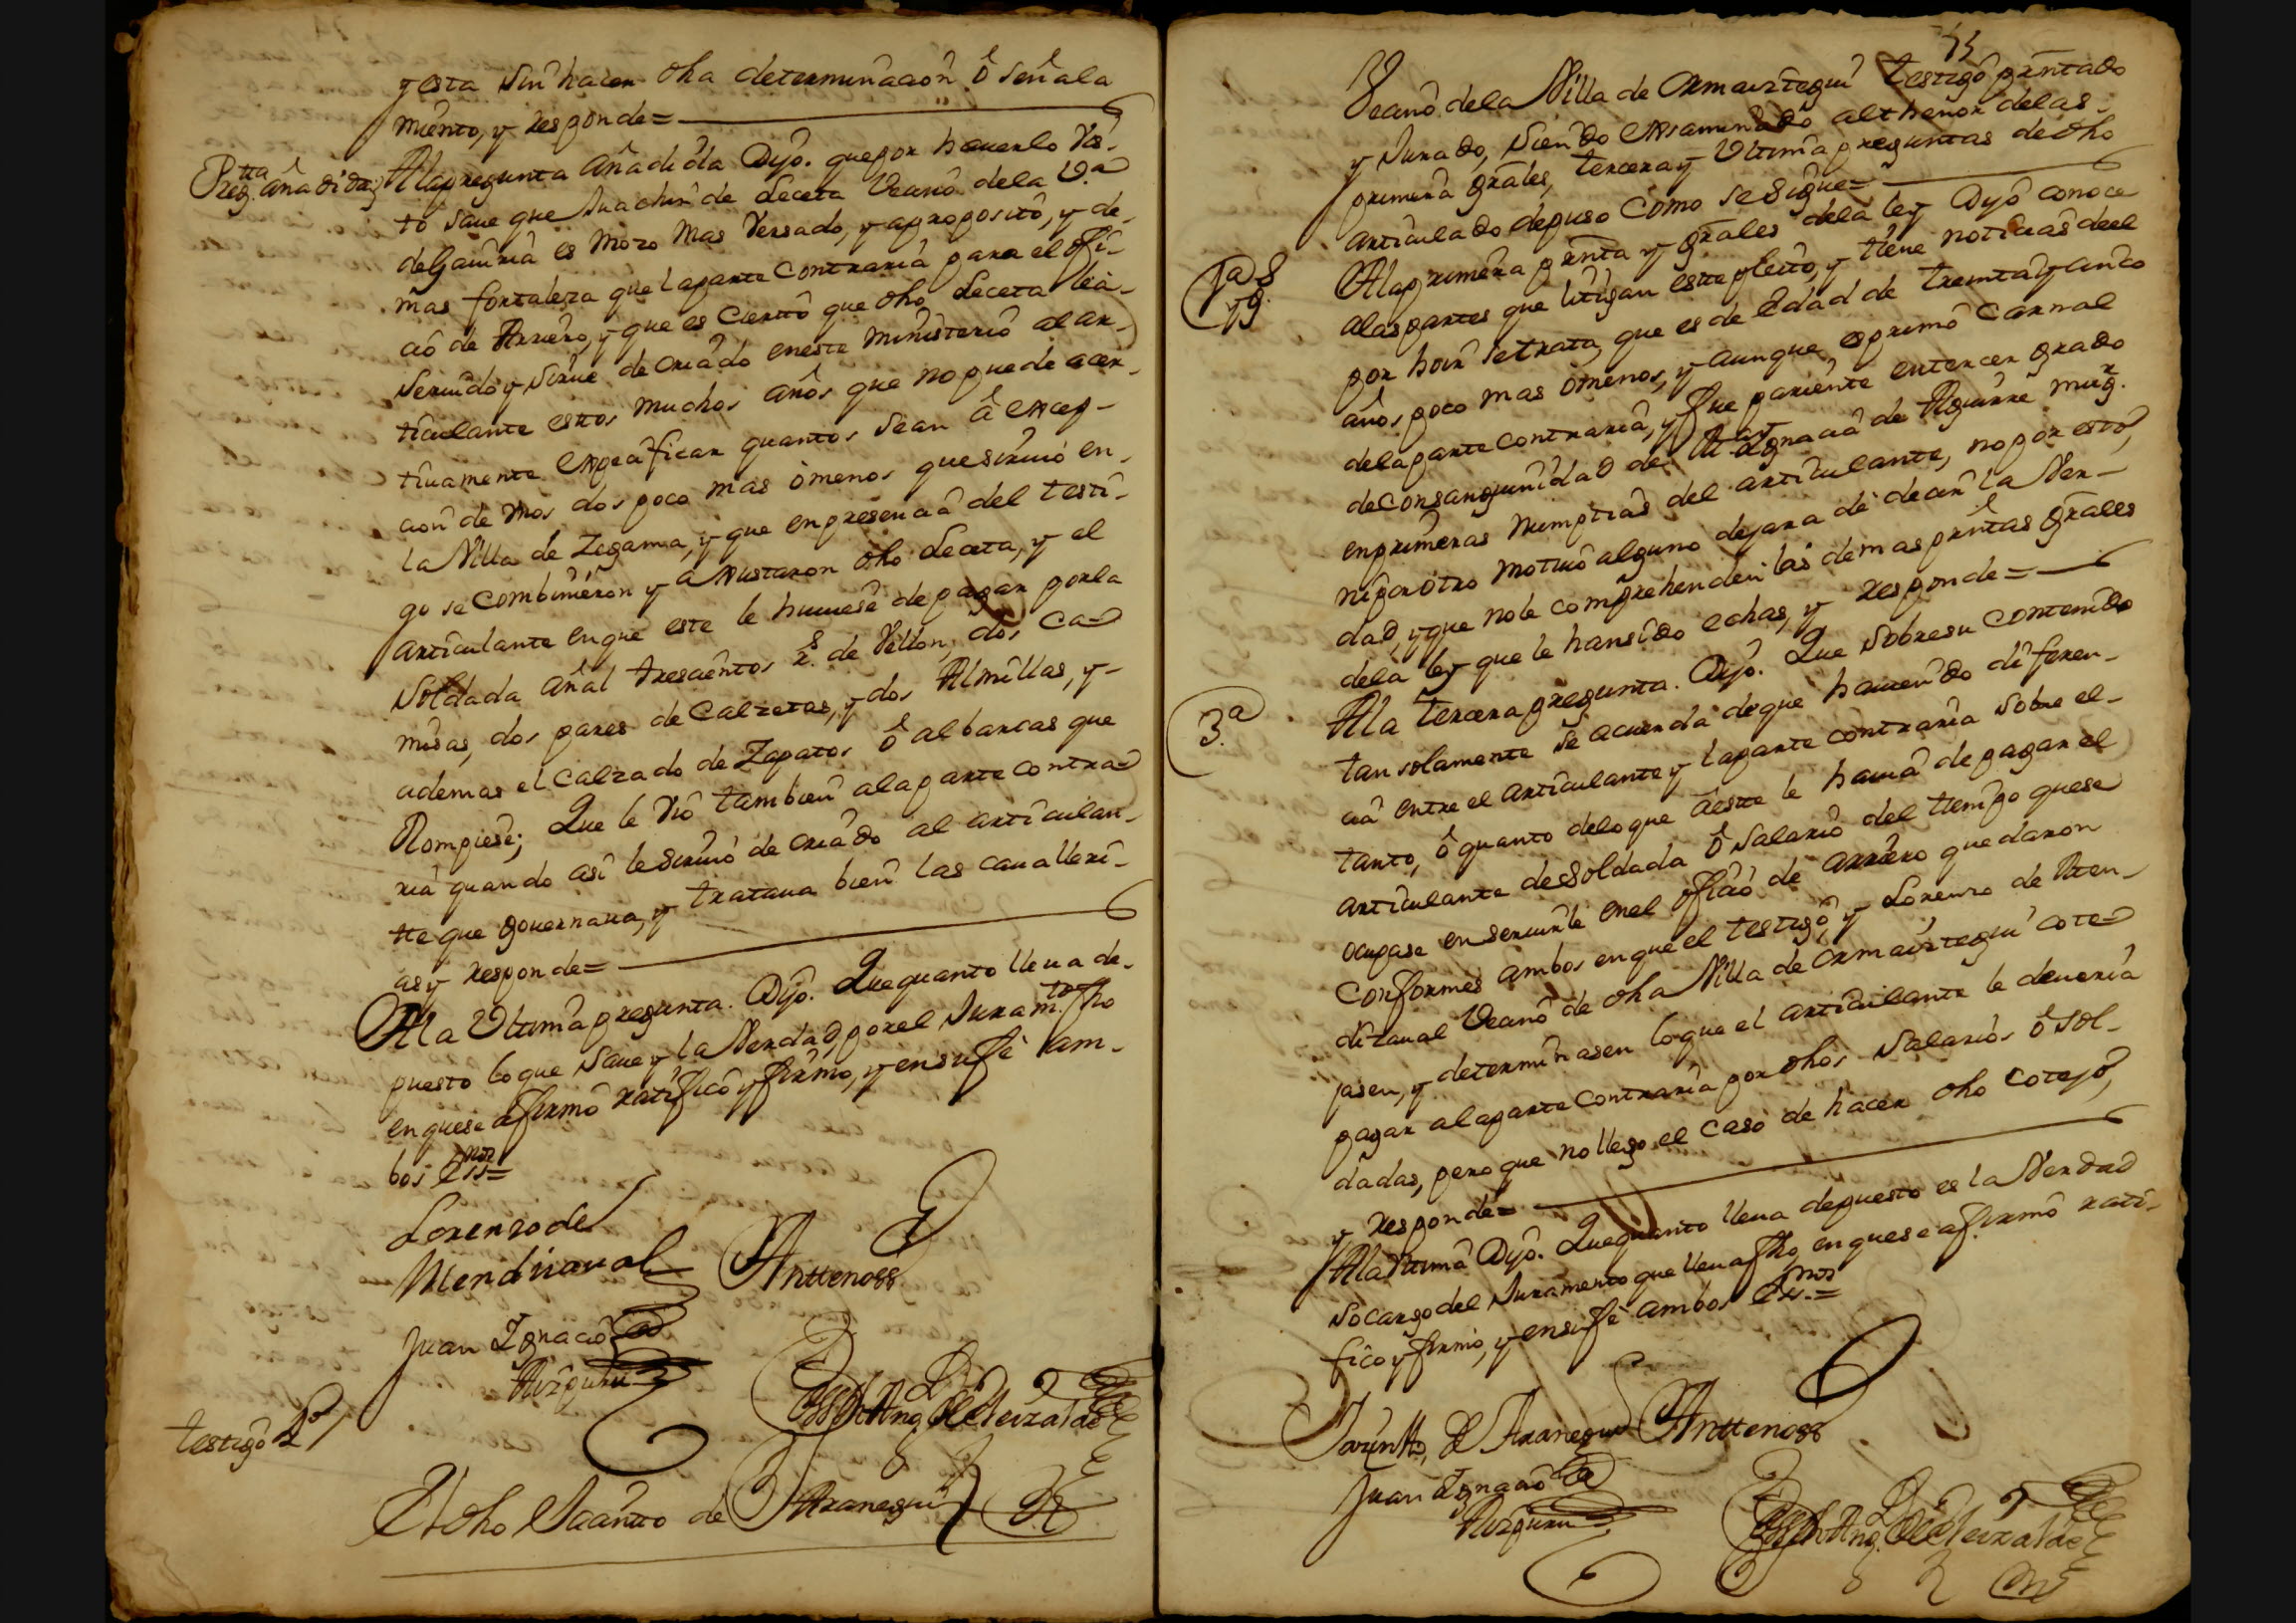 y esta sin hacer dha determinacion ô señala
miento, y responde=
Preg.tta añadida;
Ala pregunta añadida Dijo. que por hauerlo vis-
to saue que Juachin de Leceta Vecino dela V.a
de Gauiria es mozo mas versado, y aproposito, y de
mas fortaleza que la parte contraria para el ofi-
cio de Arriero, y que es cierto que dho Leceta há
seruido y sirue de criado en este ministerio al ar-
ticulante estos muchos años que no puede acer-
tiuamente expecificar quantos sean â excep-
cion de unos dos poco mas ômenos que siruió en
la Villa de Zegama, y que en presencia del testi-
go se combinieron y ajustaron dho Leceta, y el
articulante en que este le huuiese de pagar por la
soldada añal trescientos r.s de Vellon, dos ca-
misas, dos pares de Calzetas, y dos Almillas, y
ademas el Calzado de Zapatos ô albarcas que
Rompiese; Que le vio tambien ala parte contra-
ria quando asi le siruió de criado al articulan-
te que gouernaua, y trataua bien las caualleri-
as y responde=
Ala Ultima pregunta. Dijo. Que quanto lleua de-
puesto lo que saue y la Verdad, por el Juram.to fho
en que se afirmó ratificó y firmo, y en su fe am-
bos ess.nos=
Lorenzo de
Mendiuaual
Anttenoss
Juan Ygnacio
Aizpuru
testigo 2.o
El dho Jacinto de Aranegui
73
Vecino dela Villa de Ormaiztegui testigo pñtado
y Jurado, siendo exsaminado al thenor delas
primera grâles, tercera y Ultima preguntas de dho
articulado depuso como se sigue=
1.a y g.s
Ala primera pñta y grâles dela ley Dijo conoce
alas partes que litigan este pleito, y tiene noticias deel
por hoir se trata, que es de edad de treinta y cinco
años poco mas ômenos, y aunque es primo carnal
dela parte contraria, y fue pariente en tercer grado
de consanguinidad de M.a Ygnacia de Aguirre mug.r
en primeras numpcias del articulante, no por esto,
ni por otro motiuo alguno dejara de decir la Ver-
dad, y que no le comprehenden las demas pñtas grâles
dela ley que le han sido echas, y responde=
3.a
Ala tercera pregunta. Dijo. Que sobre su contenido
tan solamente se acuerda de que hauiendo diferen-
cia entre el articulante y la parte contraria sobre el
tanto, ô quanto delo que âeste le hauia de pagar el
articulante de soldada ô Salario del tiempo que se
ocupase en seruirle en el oficio de arriero quedaron
Conformes ambos en que el testigo, y Lorenzo de Men-
dizaual Vecino de dha Villa de Ormaiztegui cote-
jasen, y determinasen lo que el articulante le deueria
pagar ala parte contraria por dhos Salarios ô sol-
dadas, pero que no llego el caso de hacer dho cotejo,
y responde=
Ala Ultima Dijo. Que quanto lleua depuesto es la Verdad
so cargo del Juramento que lleua fho, en que se afirmó rati-
fico y firmó, y en su fe ambos ess.nos=
Jacintto, de Aranegui
Anttenoss
Juan Ygnacio
Aizpuru